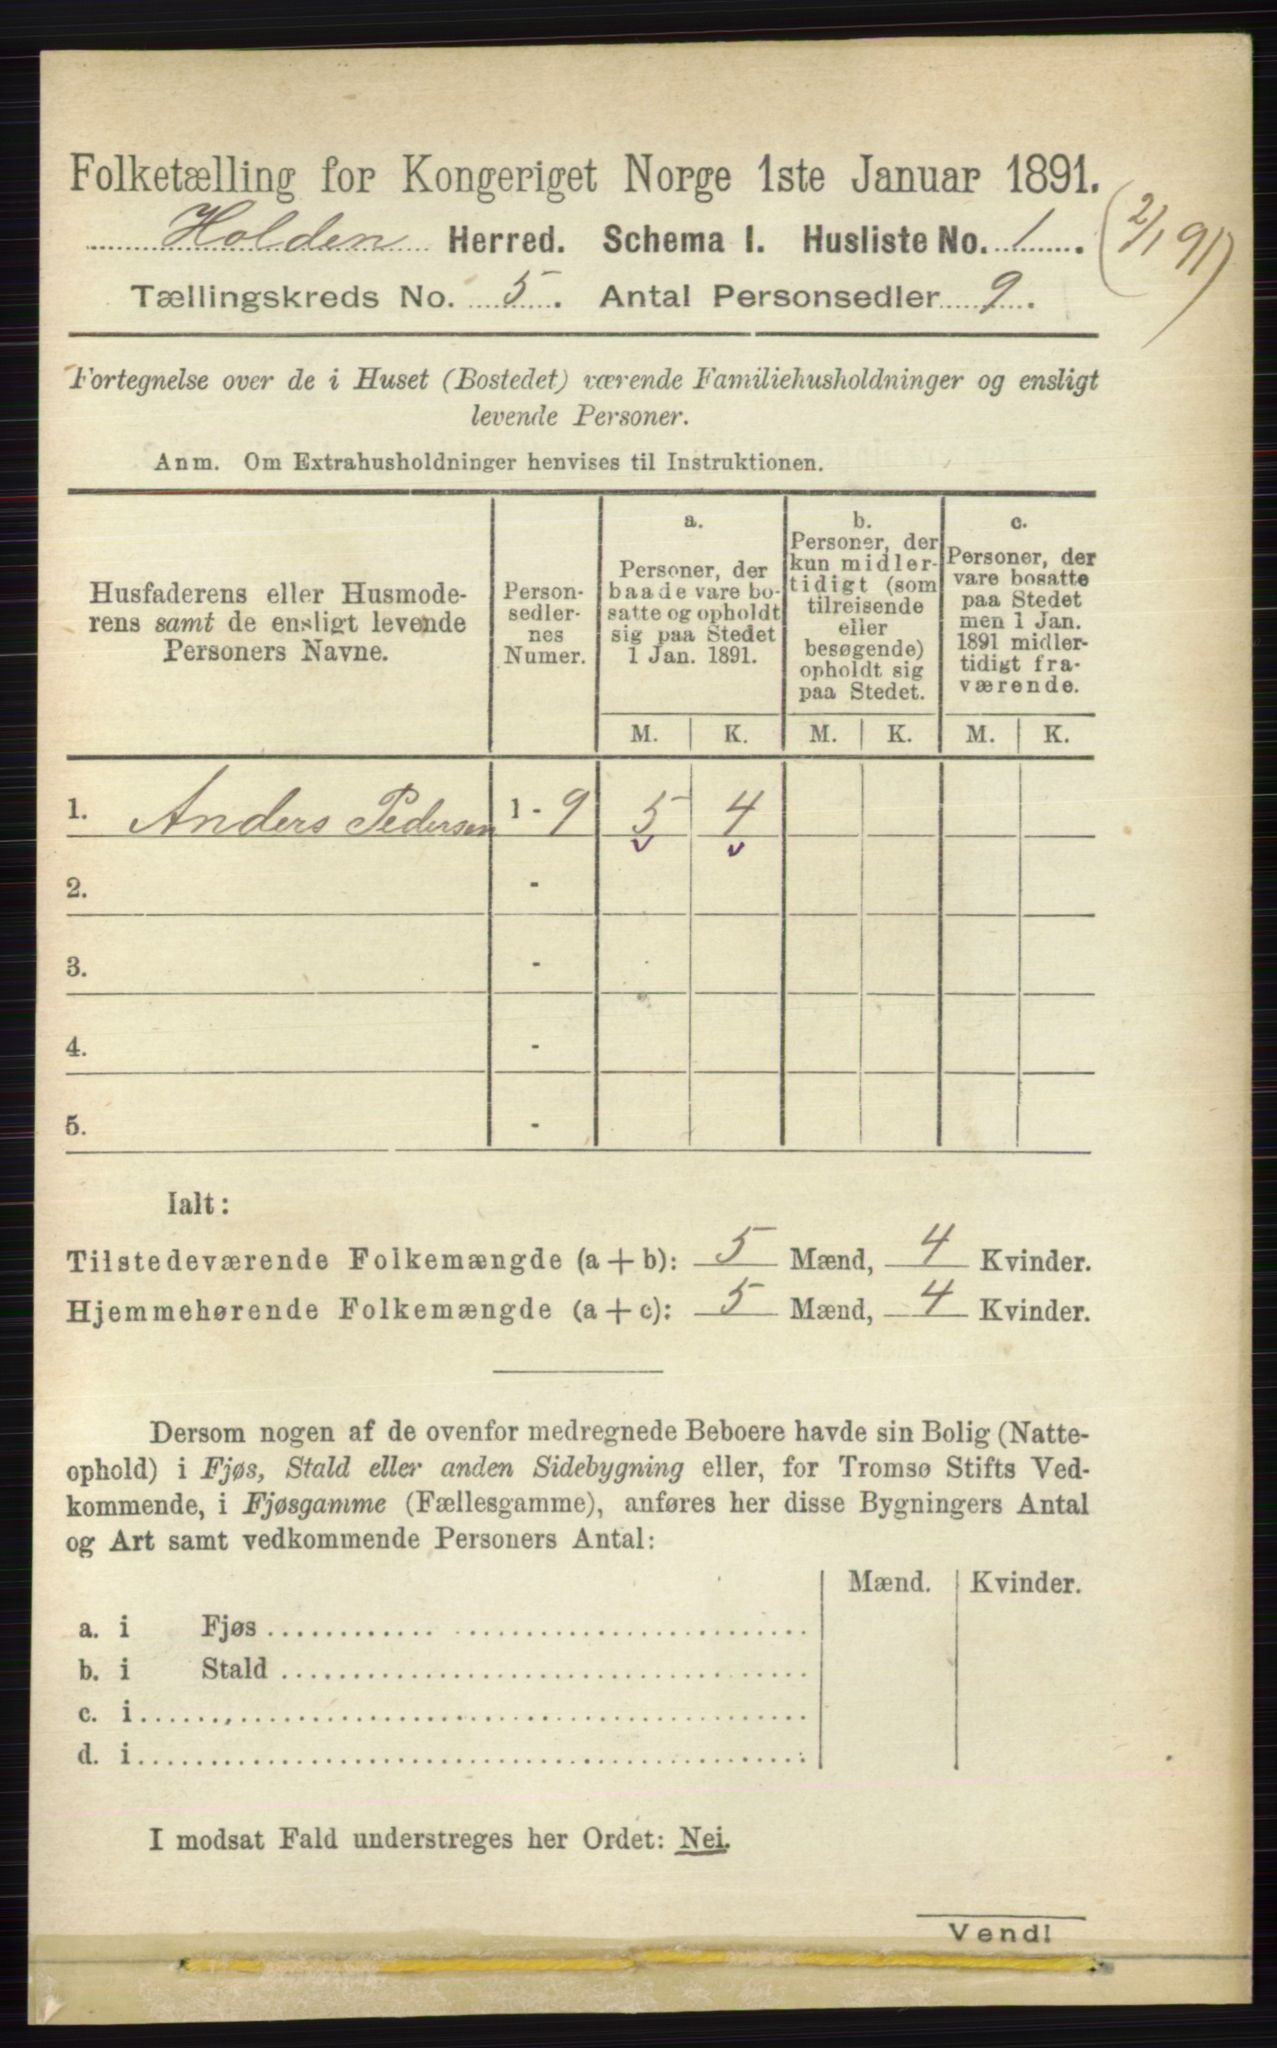 Folketælling for Kongeriget Norge 1ste Januar 1891.
Holden Herred. Schema I. Husliste No. 1. (2/1 91)
Tællingskreds No. 5. Antal Personsedler 9.
Fortegnelse over de i Huset (Bostedet) værende Familiehusholdninger og ensligt
levende Personer.
Anm. Om Extrahusholdninger henvises til Instruktionen.
Husfaderens eller Husmode-
rens samt de ensligt levende
Personers Navne.
Person-
sedler-
nes
Numer.
a.
Personer, der
baade vare bo-
satte og opholdt
sig paa Stedet
1 Jan. 1891.
b.
Personer, der
kun midler-
tidigt (som
tilreisende
eller
besøgende)
opholdt sig
paa Stedet.
c.
Personer, der
vare bosatte
paa Stedet
men 1 Jan.
1891 midler-
tidigt fra-
værende.
M. K. M. K. M. K.
1. Anders Pedersen 1 - 9 5 4
2. -
3. -
4. -
5. -
Ialt:
Tilstedeværende Folkemængde (a + b): 5 Mænd, 4 Kvinder.
Hjemmehørende Folkemængde (a + c): 5 Mænd, 4 Kvinder.
Dersom nogen af de ovenfor medregnede Beboere havde sin Bolig (Natte-
ophold) i Fjøs, Stald eller anden Sidebygning eller, for Tromsø Stifts Ved-
kommende, i Fjøsgamme (Fællesgamme), anføres her disse Bygningers Antal
og Art samt vedkommende Personers Antal:
Mænd. Kvinder.
a. i Fjøs
b. i Stald
c. i
d. i
I modsat Fald understreges her Ordet: Nei.
Vend!